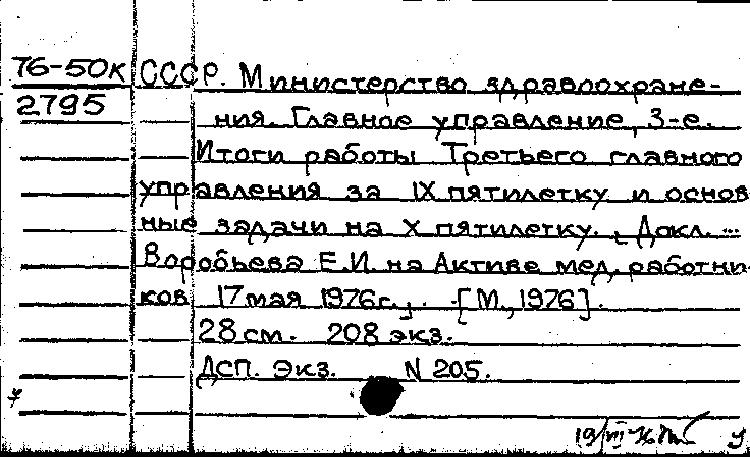 76-50к СССР. Министерство здравоохране-
2795 ния. Главное управление, 3-е.
Итоги работы Третьего главного
управления за IX пятилетку и основ
ные задачи на X пятилетку. [Докл. ...
Воробьева Е.И. на Активе мед. работни-
ков 17 мая 1976г.]. - [М., 1976].
28 см. 208 экз.
ДСП. Экз. N 205.
19/III